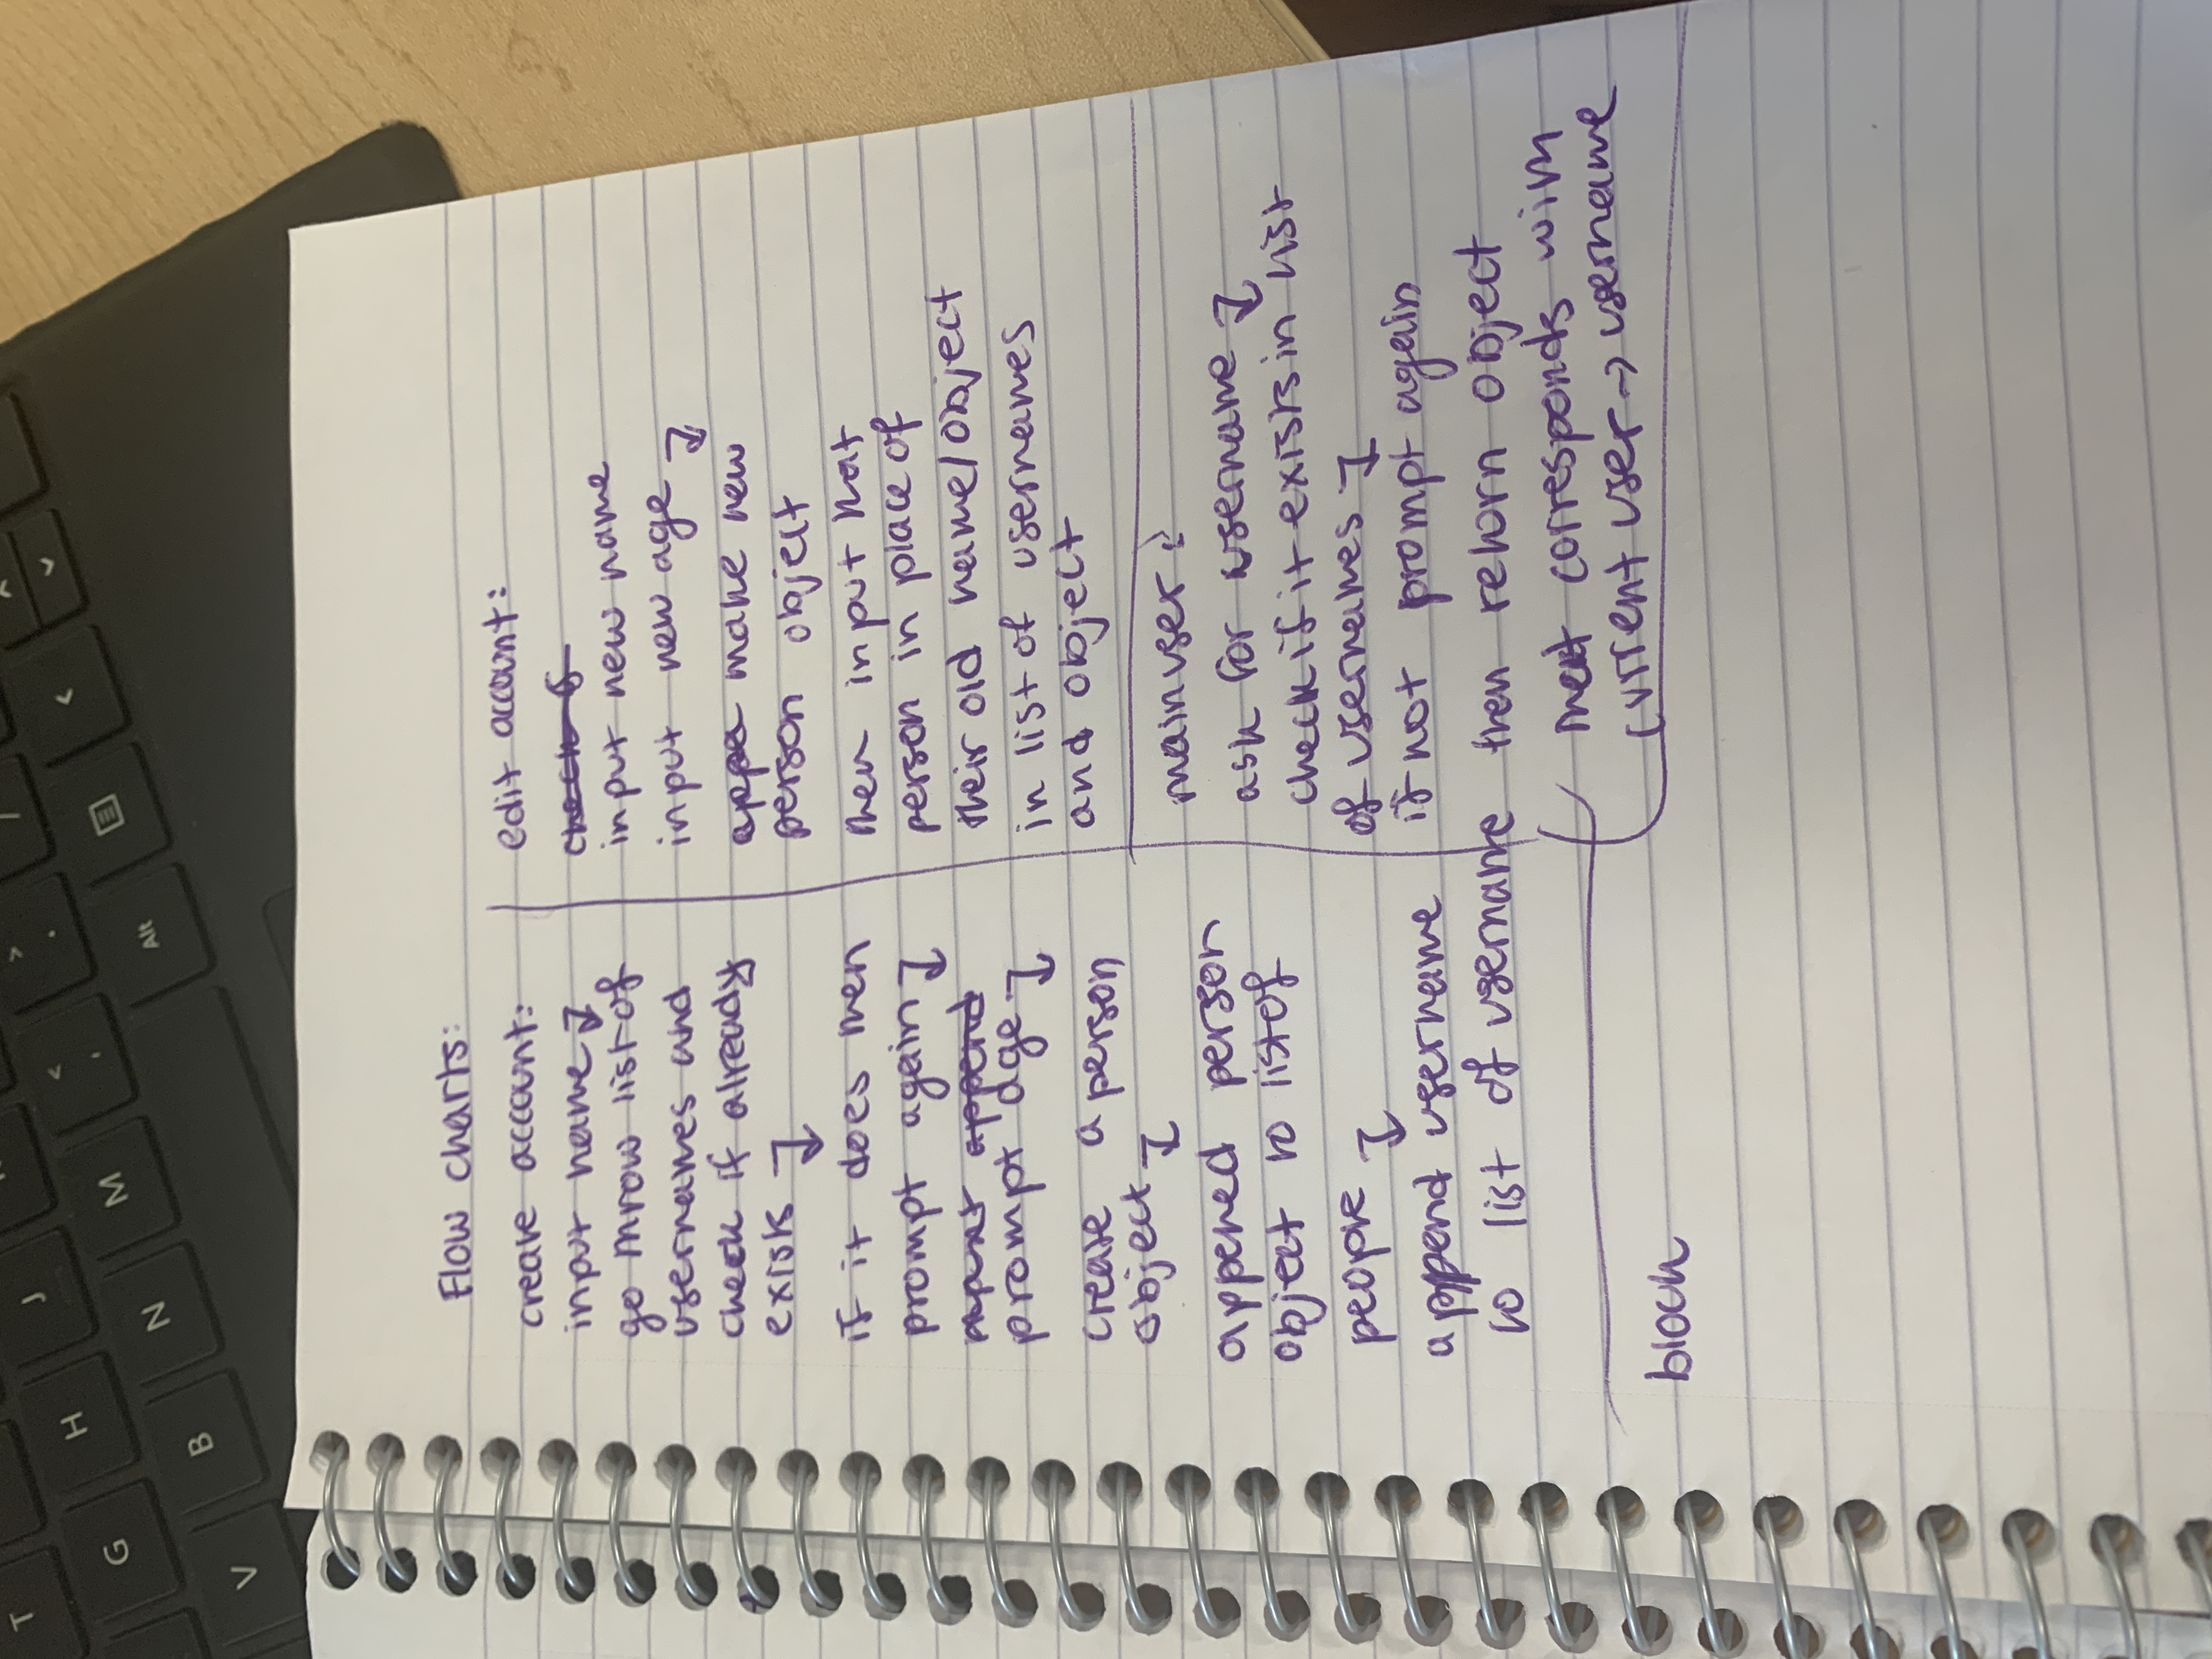 T
J
G
H
<
,
>
.
/
V
B
N
M
Alt
Flow charts:
create account:
input name ↴
go throw list of
usernames and
check if already
exists ↴
if it does then
prompt again ↴
append
prompt age ↴
create a person
object ↴
appened person
object to list of
people ↴
append username
to list of username
block
edit account:
check
input new name
input new age ↴
appe make new
person object
then input that
person in place of
their old name/object
in list of usernames
and object
mainuser :
ask for username ↴
check if it exists in list
of usernames ↴
if not prompt again
then return object
that corresponds with
current user → username